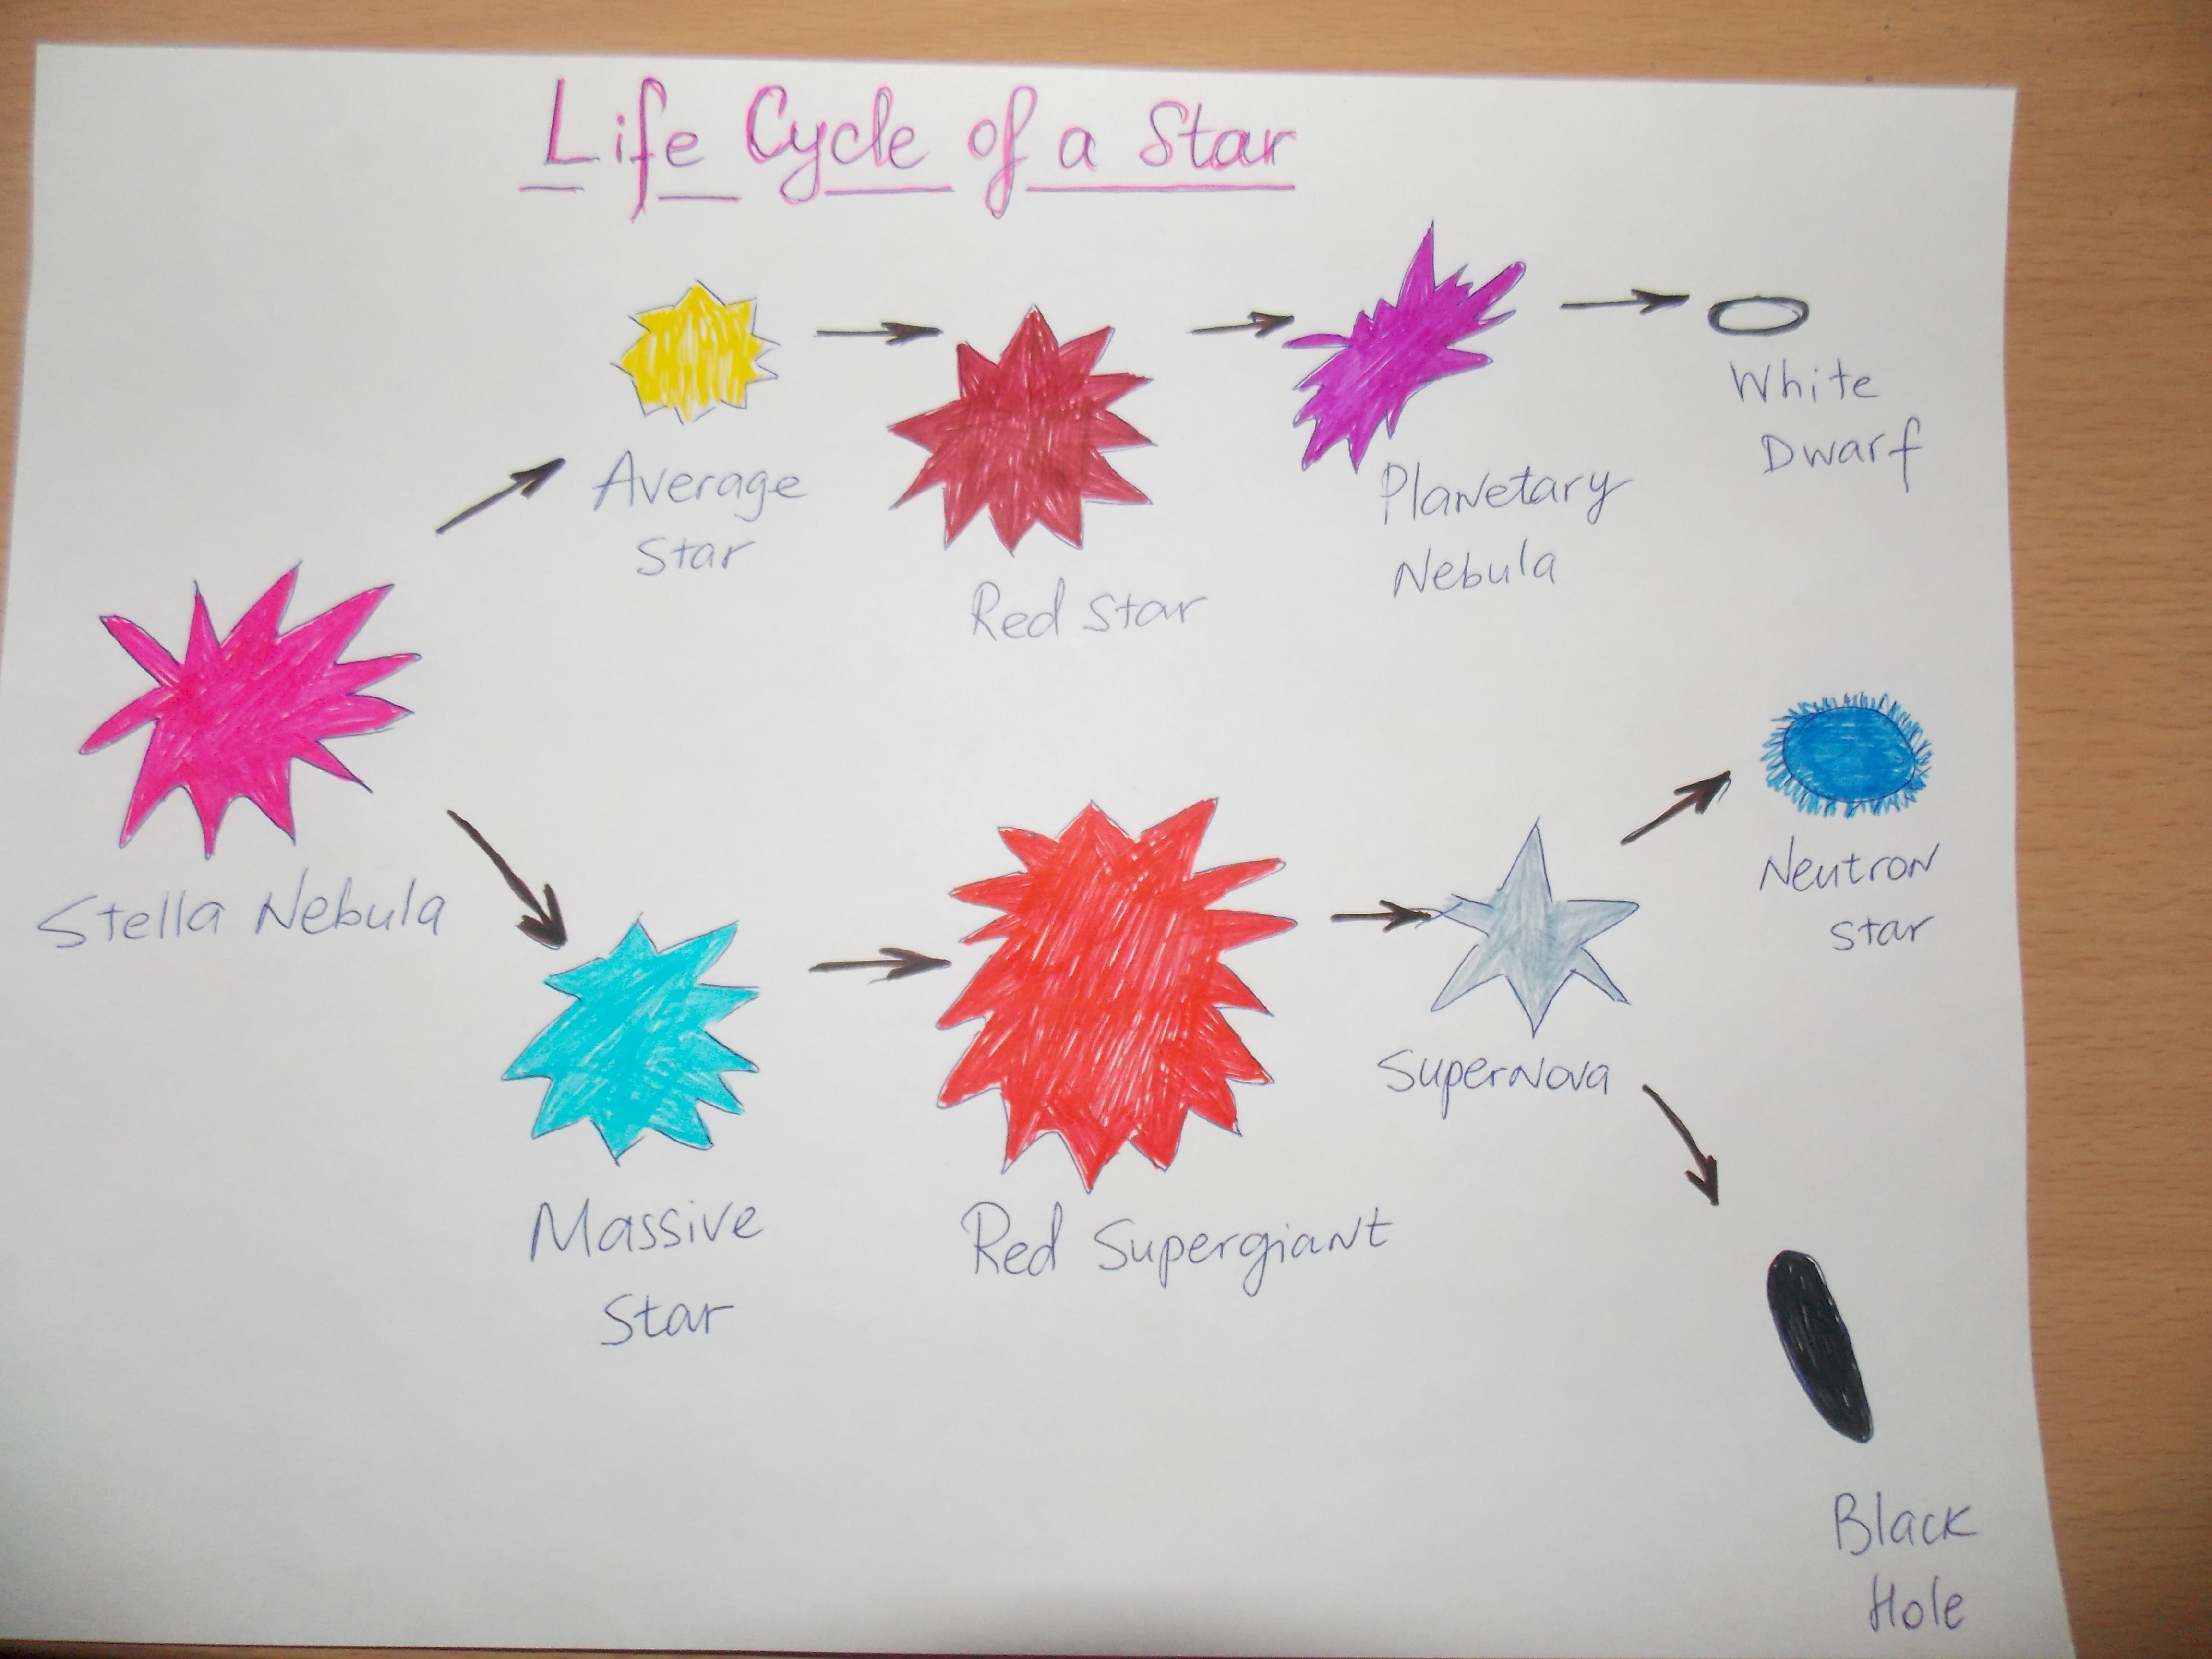 Life Cycle of a Star
Average
Star
Red Star
Planetary
Nebula
White
Dwarf
Stella Nebula
Massive
Star
Red Supergiant
Supernova
Neutron
Star
Black
Hole